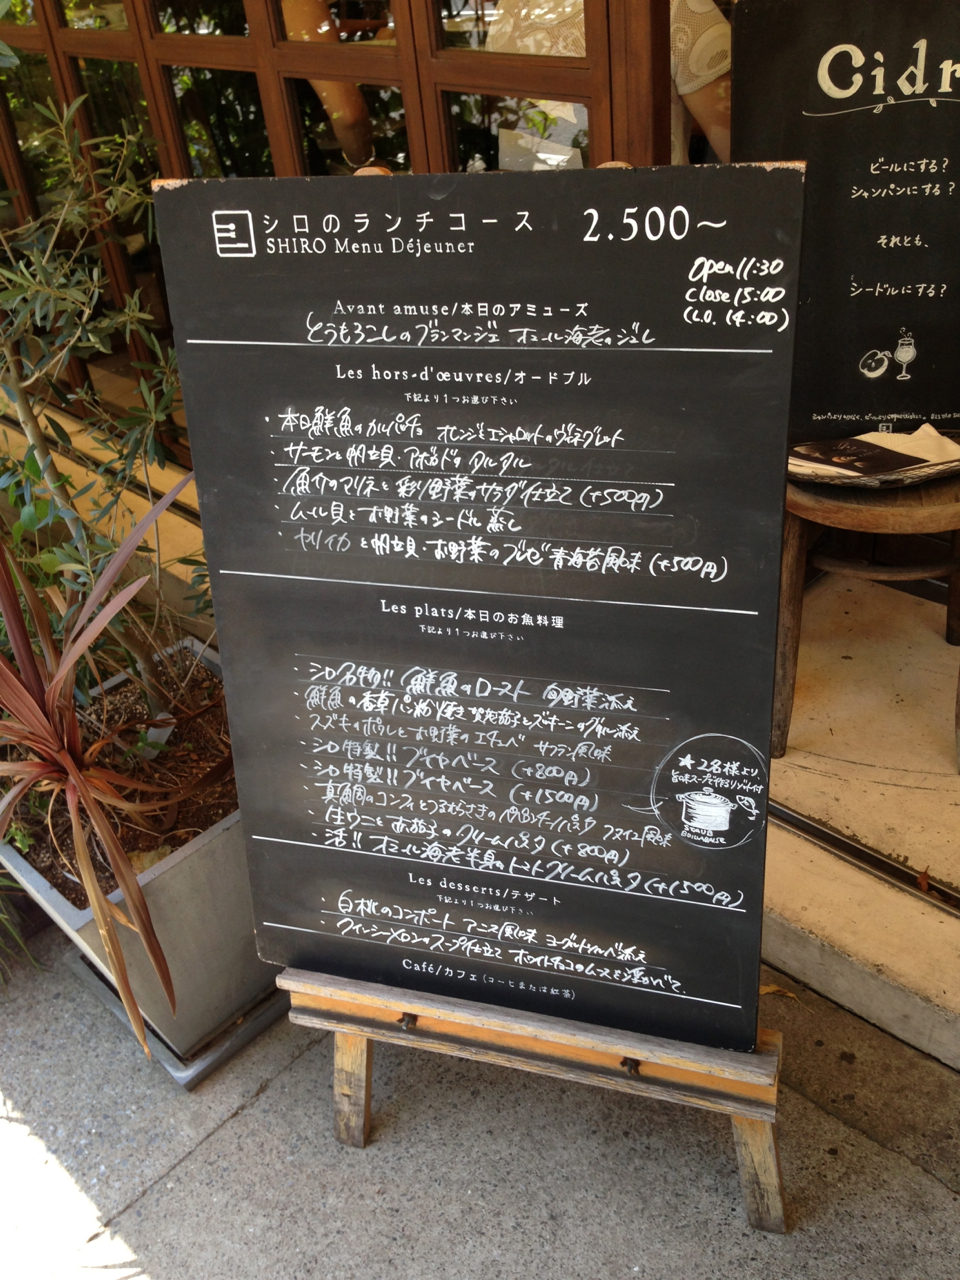 シロのランチコース 2.500〜
SHIRO Menu Déjeuner
Open 11:30
Close 15:00
(L.O. 14:00)
Avant amuse/本日のアミューズ
とうもろこしのブランマンジェ オマール海老のジュレ
Les hors-d'œuvres/オードブル
下記より1つお選び下さい
・本日鮮魚のカルパッチョ オレンジとエシャロットのヴィネグレット
・サーモンと帆立貝・アボカドのタルタル
・魚介のマリネと彩り野菜のサラダ仕立て (+500円)
・ムール貝とお野菜のシードル蒸し
・ヤリイカと帆立貝・お野菜のブレゼ 青海苔風味 (+500円)
Les plats/本日のお魚料理
下記より1つお選び下さい
・シロ名物!! 鮮魚のロースト 旬野菜添え
・鮮魚の香草パン粉焼き 賀茂茄子とズッキーニのグリル添え
・スズキのポワレとお野菜のエチュベ サフラン風味
・シロ特製!! ブイヤベース (+800円)
・シロ特製!! ブイヤベース (+1500円)
・真鯛のコンフィとつるむらさきのペペロンチーノパスタ 風味
・生ウニと赤茄子のクリームパスタ (+800円)
・活!! オマール海老半身のトマトクリームパスタ (+1500円)
★2名様より、
旨味スープで作るリゾット付
STAUB
BOUILLABAISSE
Les desserts/デザート
下記より1つお選び下さい
・白桃のコンポート アニス風味 ヨーグルトソルベ添え
・クインシーメロンのスープ仕立て ホワイトチョコのムースを浮かべて、
Café/カフェ (コーヒーまたは紅茶)
Cidr
ビールにする?
シャンパンにする?
それとも、
シードルにする?